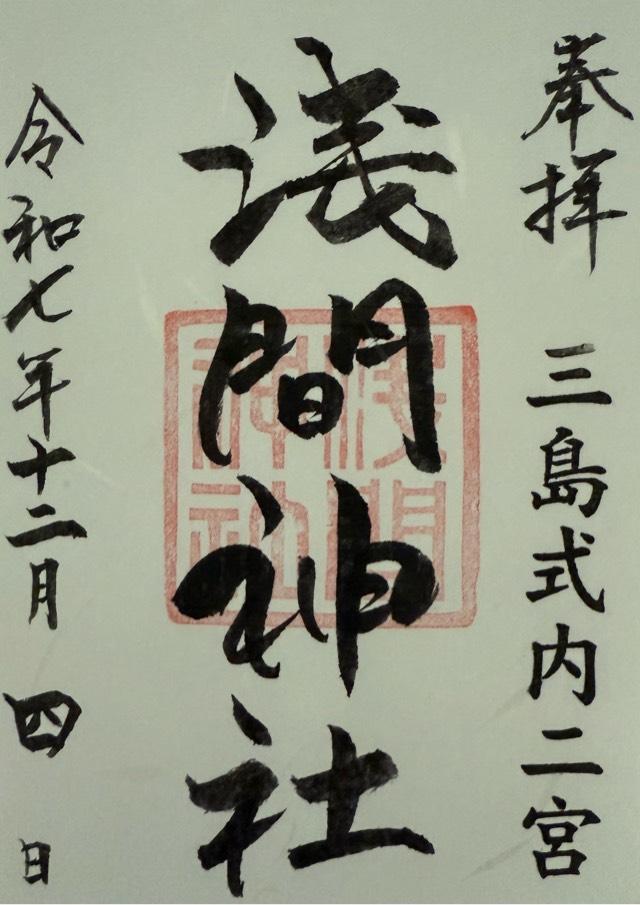 奉拝 三島式内二宮
浅間神社
浅間
神社
令和七年十二月四日